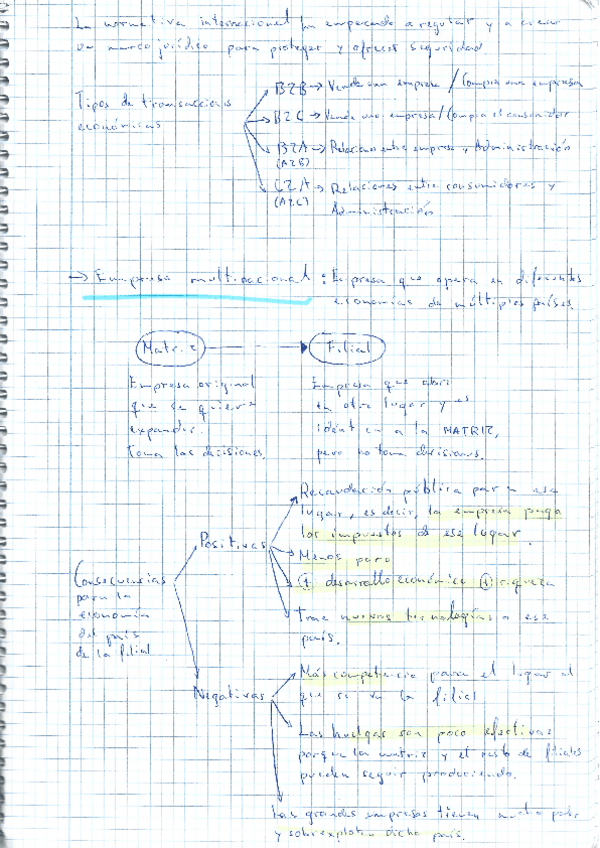 La normativa internacional ha empezado a regular y a crear
un marco jurídico para proteger y ofrecer seguridad
Tipos de transacciones
económicas
B2B → Vende una empresa / Compra una empresa
B2C → Vende una empresa / Compra el consumidor
B2A → Relaciones entre empresa y Administración
(A2B)
C2A → Relaciones entre consumidores y
(A2C)
Administración
→ Empresa multinacional : Empresa que opera en diferentes
economías de múltiples países.
Matriz → Filial
Empresa original
que se quiere
expandir.
Toma las decisiones.
Empresa que abri
en otro lugar y es
idént en a la MATRIZ,
pero no toma decisiones.
Consecuencias
para la
economía
del país
de la filial
Positivas
Recaudación pública para ese
lugar, es decir, la empresa paga
los impuestos de ese lugar.
Menos paro
↑ desarrollo económico ↑ riqueza
Trae nuevas tecnologías a ese
país.
Negativas
Más competencia para el lugar al
que se va la filial
Las huelgas son poco efectivas
porque la matriz y el resto de filiales
pueden seguir produciendo.
Las grandes empresas tienen mucho poder
y sobreexplotan dicho país.